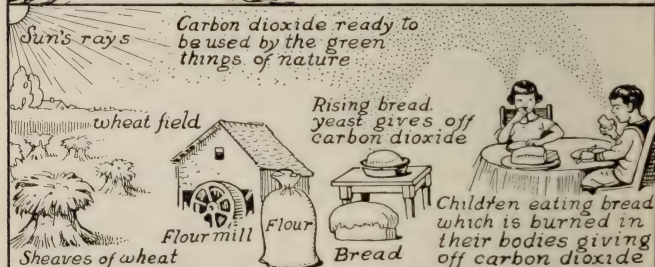 Sun's rays
Carbon dioxide ready to
be used by the green
things of nature
wheat field
Rising bread.
yeast gives off
carbon dioxide
Flour mill
Flour
Sheaves of wheat
Bread
Children eating bread
which is burned in
their bodies giving
off carbon dioxide